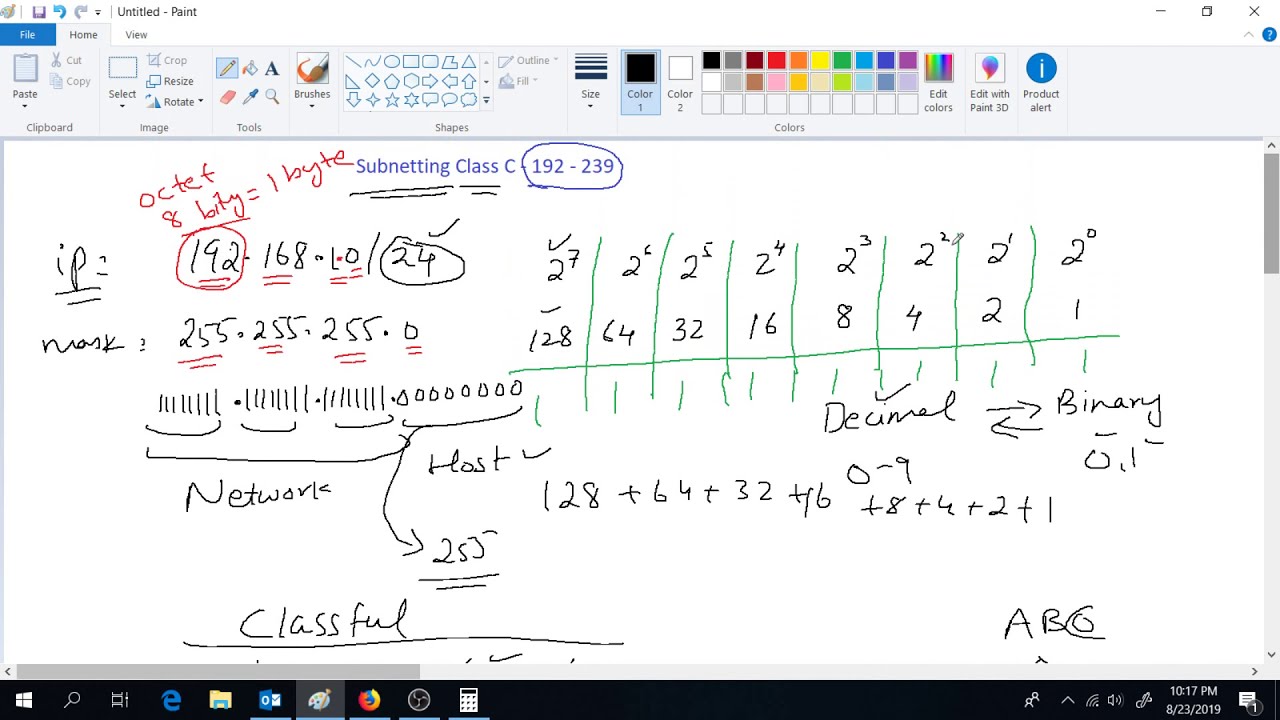 Untitled - Paint
File Home View
Paste
Cut
Copy
Clipboard
Select
Crop
Resize
Rotate
Image
Tools
Brushes
Shapes
Outline
Fill
Size
Color 1
Color 2
Colors
Edit colors
Edit with Paint 3D
Product alert
Subnetting Class C - 192 - 239
octet
8 bity = 1 byte
ip: 192.168.1.0/24
mask: 255.255.255.0
11111111.11111111.11111111.00000000
Network
Host
255
2^7 2^6 2^5 2^4 2^3 2^2 2^1 2^0
128 64 32 16 8 4 2 1
1 1 1 1 1 1 1 1
Decimal Binary
0-9 0,1
128 + 64 + 32 + 16 + 8 + 4 + 2 + 1
Classful
ABC
10:17 PM
8/23/2019
1